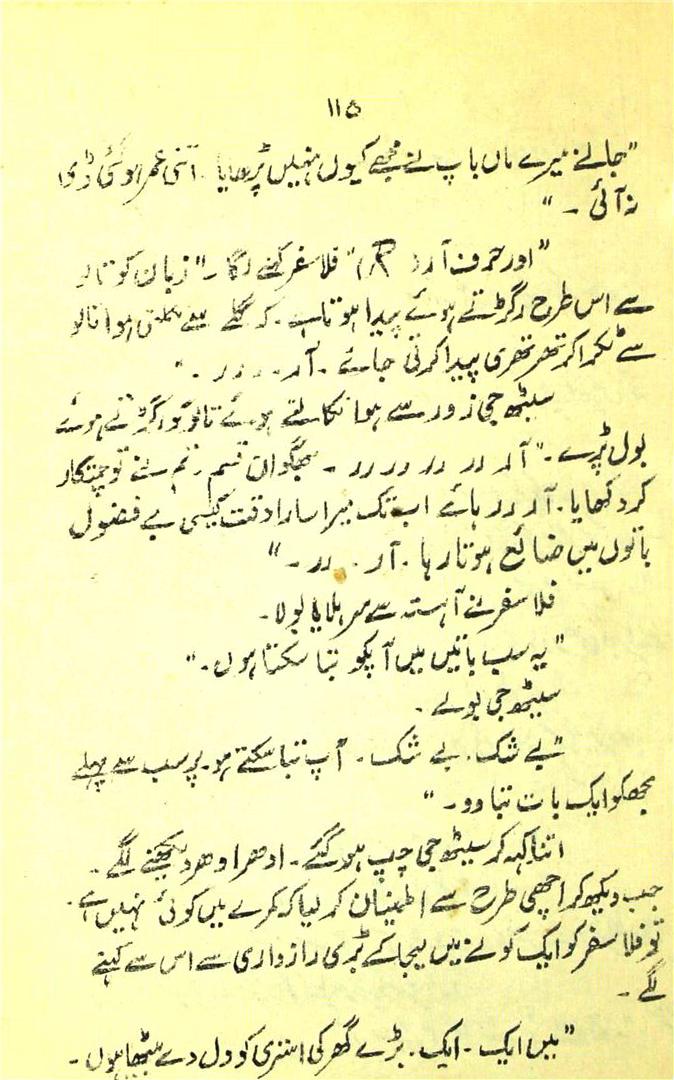 ۱۱۵
"جانے میرے ماں باپ نے مجھے کیوں نہیں پڑھایا۔ اتنی عمر ہوگئی ڈی
نہ آئی۔"
"اور حرف آر (R)" فلاسفر کہنے لگا۔ "زبان کو تالو
سے اس طرح رگڑتے ہوئے پیدا ہوتا ہے۔ کہ گلے سے نکلتی ہوا تالو
سے ٹکرا کر تھرتھری پیدا کرتی جائے۔ آر۔ ر۔ ر ر۔"
سیٹھ جی زور سے ہوا نکالتے ہوئے تالو کو رگڑتے ہوئے
بول پڑے۔ "آر رر رر رر رر۔ بھگوان قسم۔ تم نے تو چمتکار
کر دکھایا۔ آر رر ہائے اب تک میرا سارا وقت کیسی بے فضول
باتوں میں ضائع ہوتا رہا۔ آر۔ رر۔"
فلاسفر نے آہستہ سے سر ہلایا بولا۔
"یہ سب باتیں میں آپکو بتا سکتا ہوں۔"
سیٹھ جی بولے۔
"بے شک۔ بے شک۔ آپ بتا سکتے ہو۔ پر سب سے پہلے
مجھکو ایک بات بتا دو۔"
اتنا کہہ کر سیٹھ جی چپ ہوگئے۔ ادھر اودھر دیکھنے لگے۔
جب دیکھ کر اچھی طرح سے اطمینان کر لیا کہ کمرے میں کوئی نہیں ہے۔
تو فلاسفر کو ایک کونے میں لیجا کے بڑی رازداری سے اس سے کہنے
لگے۔
"میں ایک۔ ایک۔ بڑے گھر کی استری کو دل دے بیٹھا ہوں۔